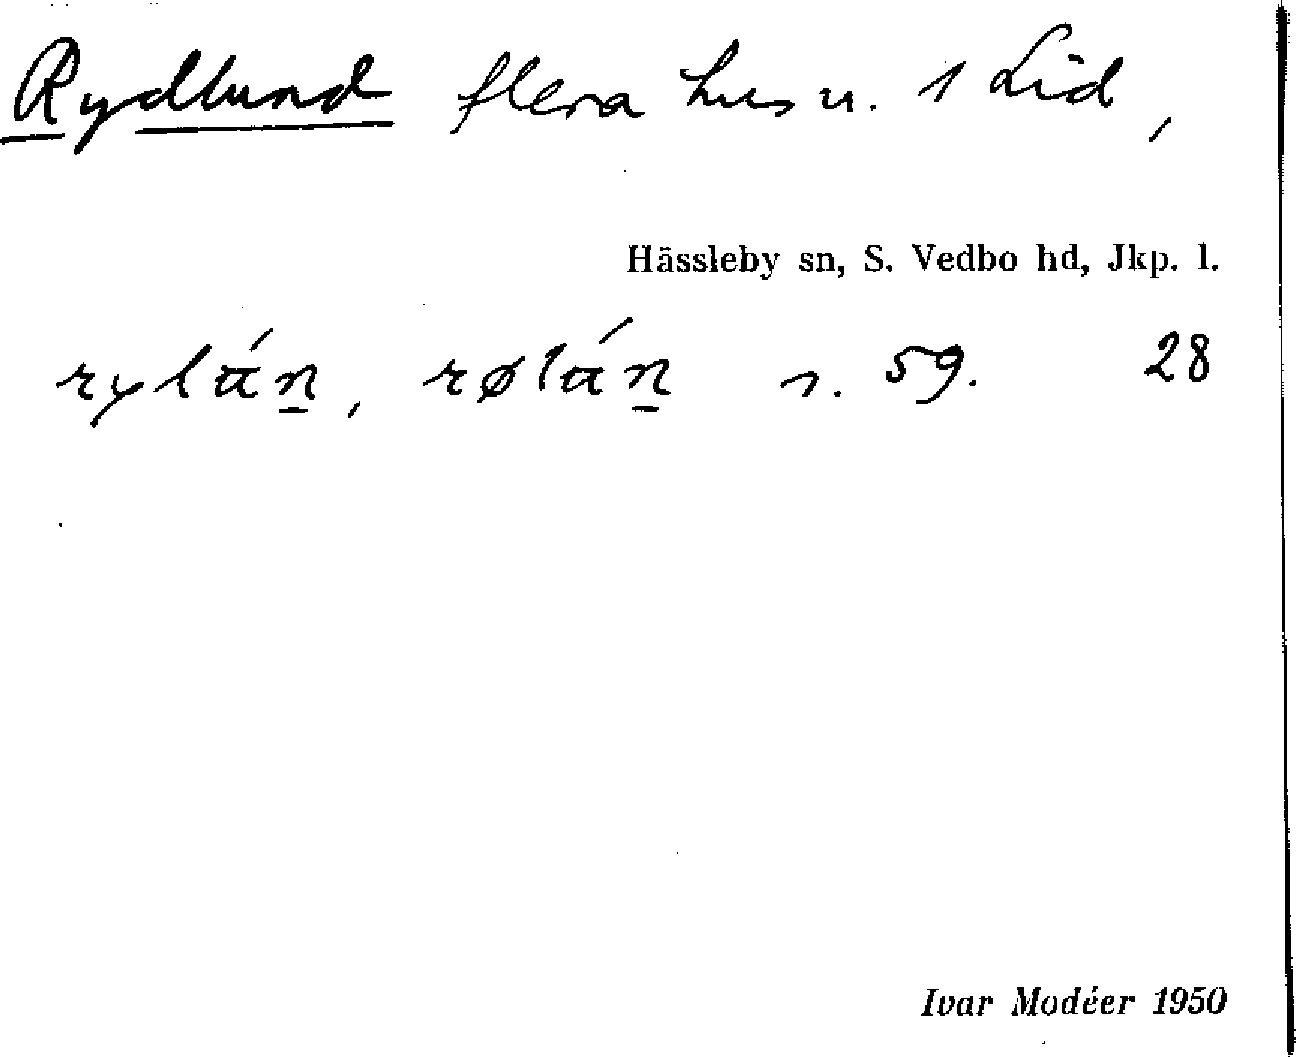 Rydlund flera hus u. 1 Lid,
Hässleby sn, S. Vedbo hd, Jkp. l.
rylán, rølán s. 59. 28
Ivar Modéer 1950